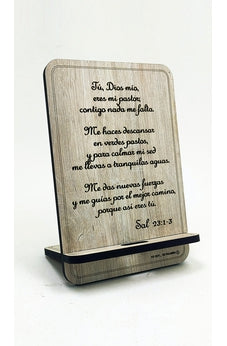 Tú, Dios mío,
eres mi pastor;
contigo nada me falta.
Me haces descansar
en verdes pastos,
y para calmar mi sed
me llevas a tranquilas aguas.
Me das nuevas fuerzas
y me guías por el mejor camino,
porque así eres tú.
Sal 23:1-3